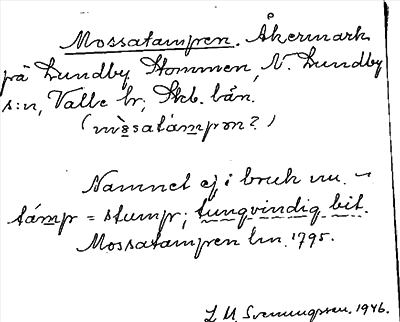 Mossatampen. Åkermark
på Lundby Stommen, N. Lundby
s:n, Valle hr; Skb. län.
(mɷ̀satámpən?)
Namnet ej i bruk nu. –
támp = stump; tungvindig bit.
Mossatampen lm. 1795.
L M Svenungsson. 1946.